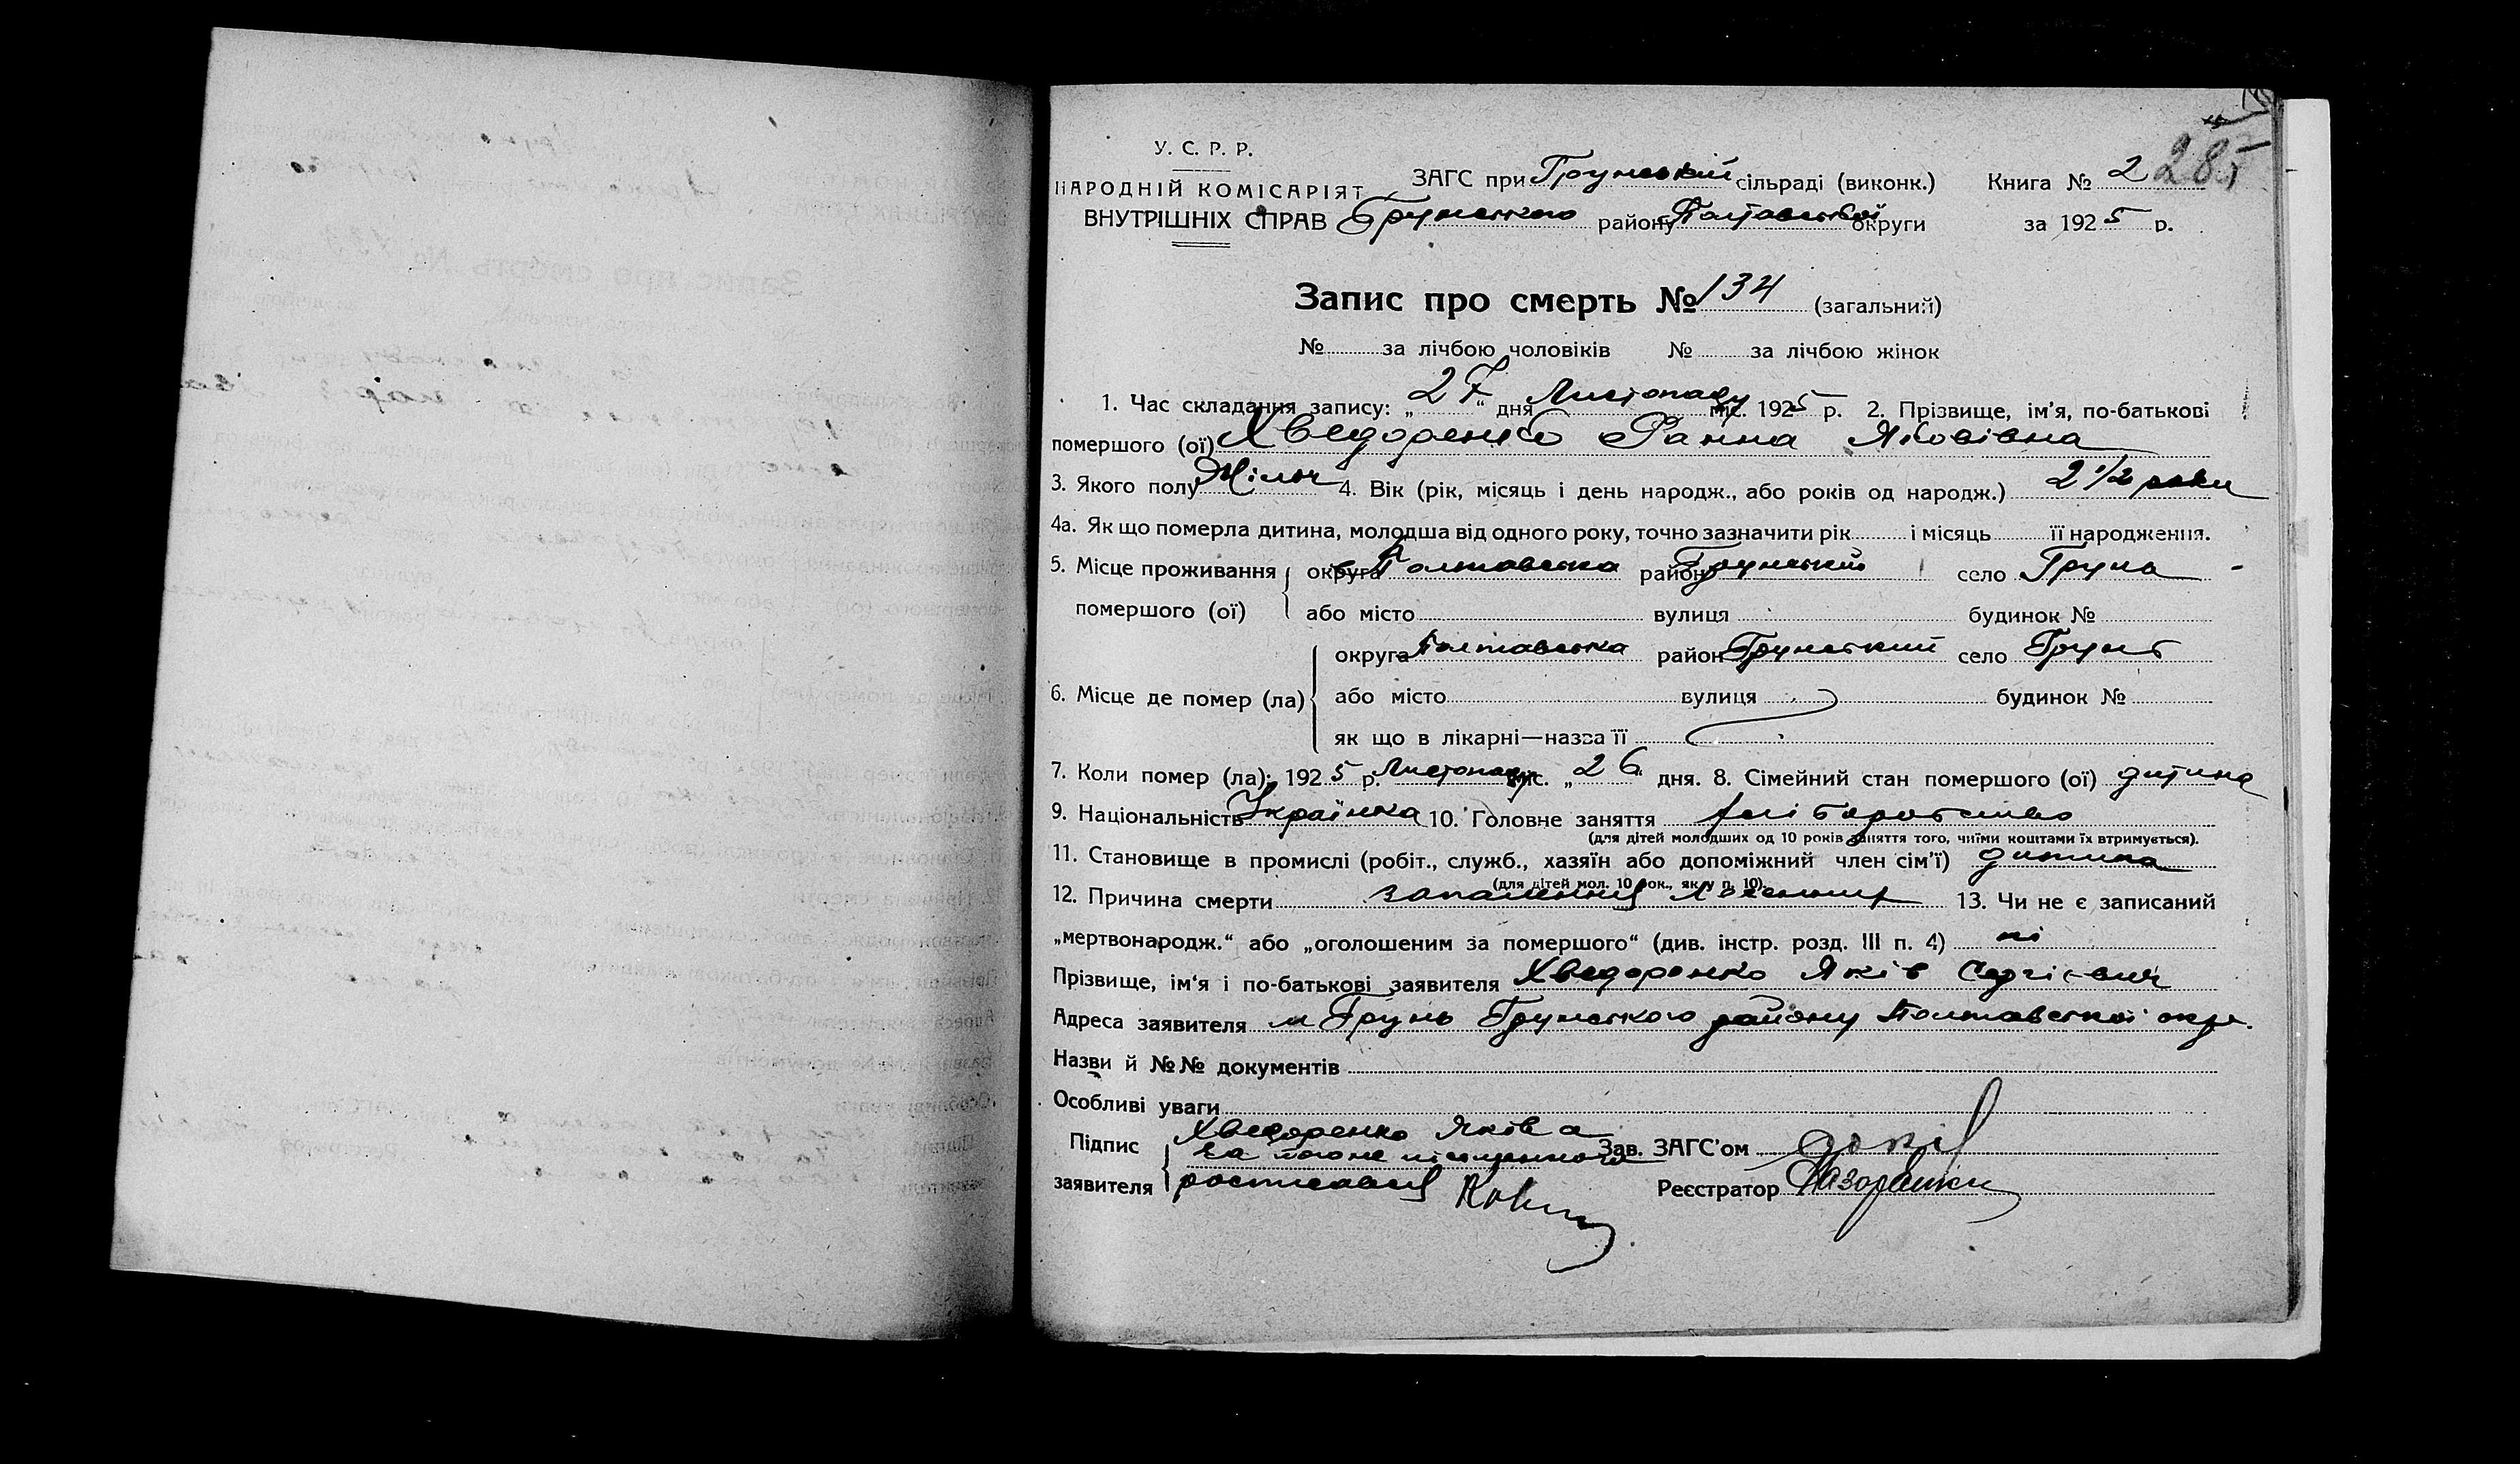 285
У. С. Р. Р.
НАРОДНІЙ КОМІСАРІЯТ
ВНУТРІШНІХ СПРАВ
ЗАГС при Грунський сільраді (виконк.) Книга № 2
Грунського району Полтавської округи за 1925 р.
Запис про смерть № 134 (загальний)
№ за лічбою чоловіків № за лічбою жінок
1. Час складання запису: „27“ дня Листопаду міс. 1925 р. 2. Прізвище, ім’я, по-батькові
помершого (ої) Хведоренко Ганна Яковівна
3. Якого полу Жіноч 4. Вік (рік, місяць і день народж., або років од народж.) 2 1/2 роки
4а. Як що померла дитина, молодша від одного року, точно зазначити рік і місяць її народження.
5. Місце проживання помершого (ої) округа Полтавська район Грунський село Грунь
або місто вулиця будинок №
6. Місце де помер (ла) округа Полтавська район Грунський село Грунь
або місто вулиця будинок №
як що в лікарні—назва її
7. Коли помер (ла): 1925 р. Листопаду міс. „26“ дня. 8. Сімейний стан помершого (ої) дитина
9. Національність Українка 10. Головне заняття хліборобство
(для дітей молодших од 10 років заняття того, чиїми коштами їх втримується).
11. Становище в промислі (робіт., служб., хазяїн або допоміжний член сім’ї) дитина
(для дітей мол. 10 рок., як у п. 10).
12. Причина смерти запалення 13. Чи не є записаний
„мертвонародж.“ або „оголошеним за помершого“ (див. інстр. розд. III п. 4) ні
Прізвище, ім‘я і по-батькові заявителя Хведоренко Яків Сергієвич
Адреса заявителя м Грунь Грунського району Полтавської окр.
Назви й №№ документів
Особливі уваги
Підпис заявителя Хведоренко Яків а
за його неписьменного
росписався
Зав. ЗАГС’ом
Реєстратор